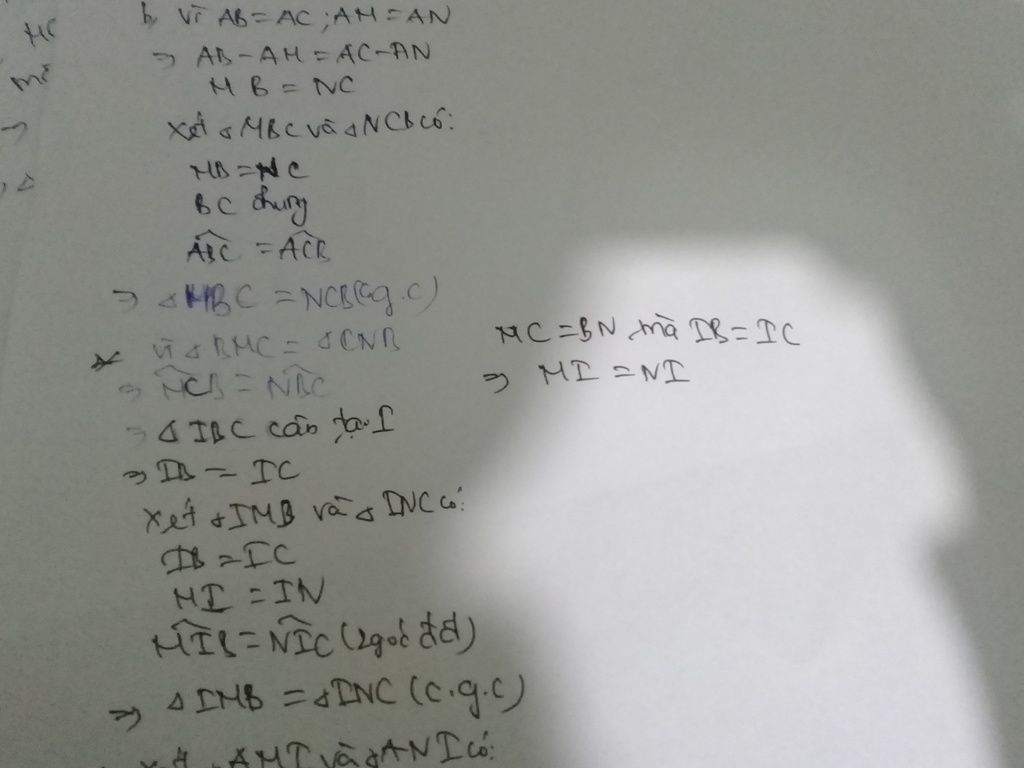 MC
mà
⇒
, Δ
b, vì AB = AC ; AM = AN
⇒ AB - AM = AC - AN
MB = NC
xét ΔMBC và ΔNCB có:
MB = NC
BC chung
ABC = ACB
⇒ ΔMBC = NCB (c.g.c)
* vì ΔBMC = ΔCNB
⇒ MCB = NBC
⇒ ΔIBC cân tại I
⇒ IB = IC
xét ΔIMB và ΔINC có:
IB = IC
MI = IN
MIB = NIC (2góc đđ)
⇒ ΔIMB = ΔINC (c.g.c)
xét ΔAMI và ΔANI có:
MC = BN mà IB = IC
⇒ MI = NI